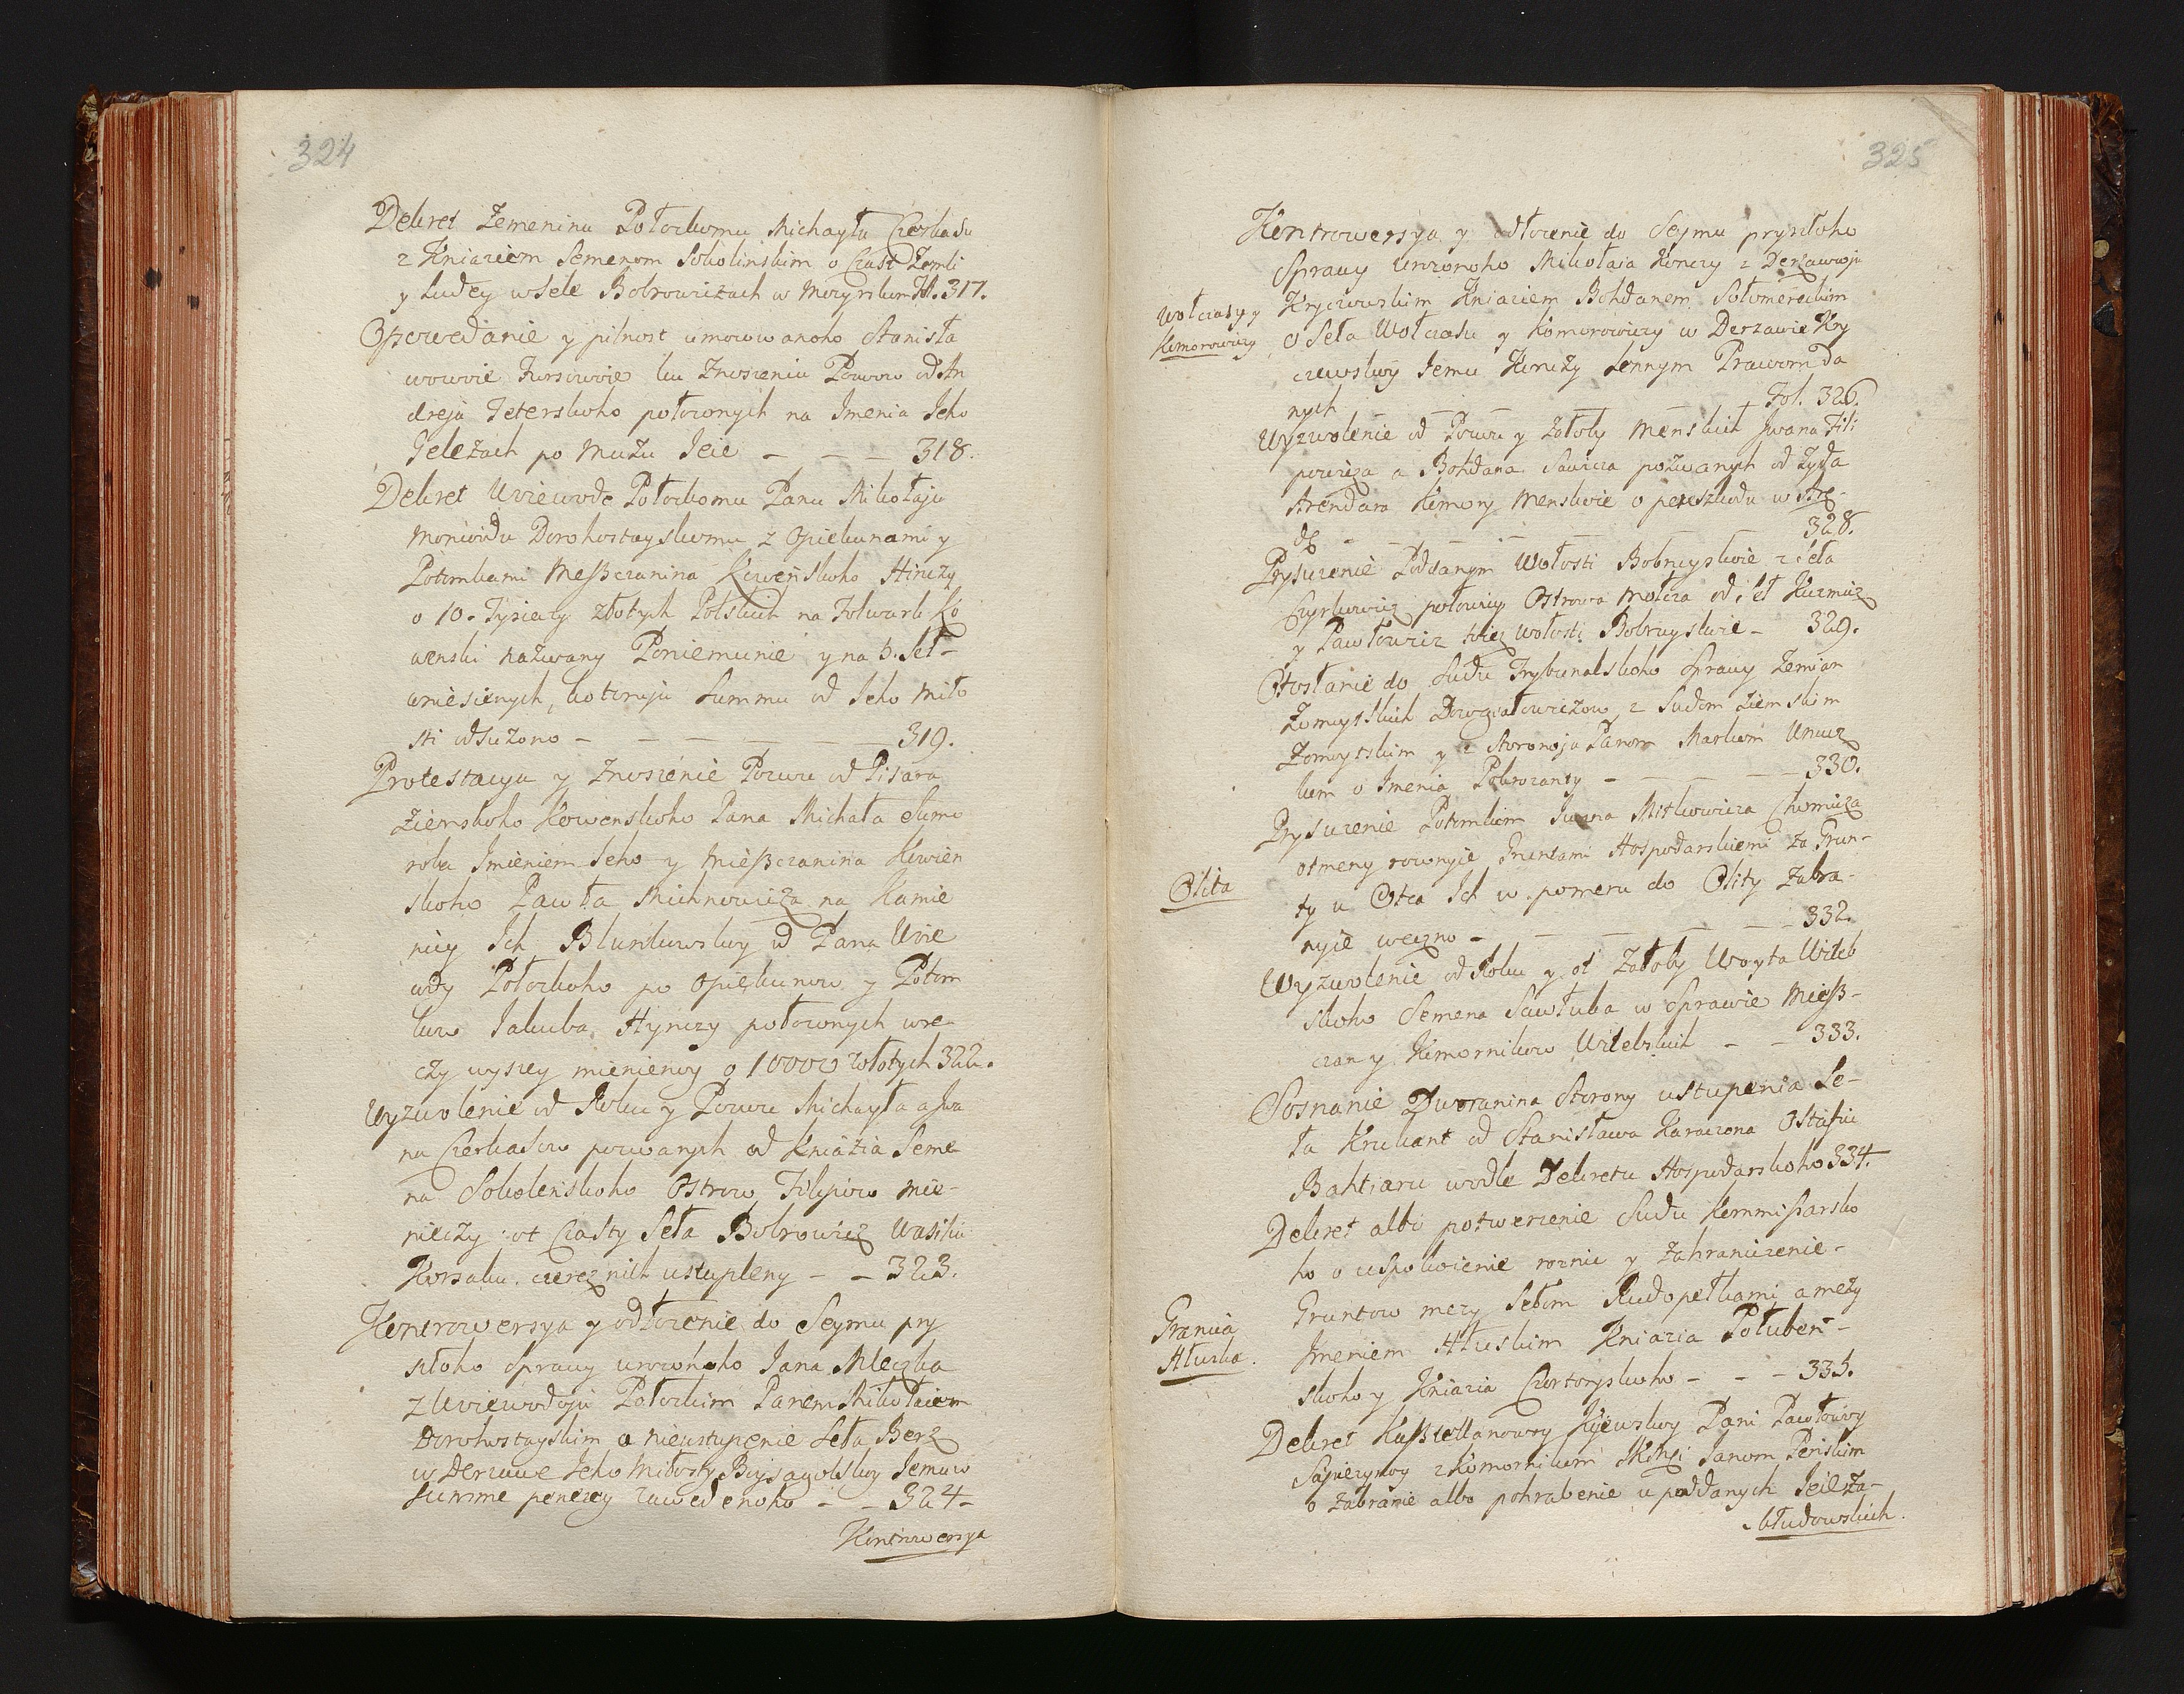 324
Dekret Zemeninu Połockomu Michayłu Czerkasu
z Kniaziem Semenom Sokolinskim o Czast Zemli
y Ludey w Sele Bobrowiczach w Mozyrskom Fol. 317.
Opowedanie y pilnost umocowanoho Stanisła
wowoie Fursowoie ku Znoszeniu Pozwow od An
dreja Teterskoho położonych na Imenia Jeho
Jeleżach po Mużu Jeie - - - 318.
Dekret Woiewode Połockomu Panu Mikołaju
Moniwidu Dorohostayskomu z Opiekunami y
Potomkami Meßczanina Kowenskoho Hinczy
o 10. Tysiaczy złotych Polskich na Folwark Ko
wenski nazwany Poniemunie y na 3. Seł-
wniesienych, kotoruju Summu od Jeho Miło
sti odsużono - - - - - 319.
Protestacya y Znoszenie Pozwu od Pisara
Ziemskoho Kowenskoho Pana Michała Sumo
roka Imieniem Jeho y Mießczanina Kowien
skoho Pawła Michnowicza na Kamie
nicy Ich Blunkowskoy od Pana Woie
wdy Połockoho po Opiekunow y Potom
kow Jakuba Hynczy położonych w re-
czy wyszey mienienoy o 10000 złotych 322.
Wyzwolenie od Roku y Pozwu Michayła a Iwa
na Czerkasow pozwanych od Kniazia Seme
na Sokolenskoho Ostrow Filipow mie-
nieczy ot Czasty Seła Bobrowicz Wasiliu
Korsaku. czerez nich ustupleny - - 323.
Kontrowersya y odłożenie do Seymu pry
szłoho Sprawy urożonoho Jana Mleczka
z Woiewodoju Połockim Panem Mikołaiem
Dorohostayskim o nieustupenie Seła Berz
w Derżawe Jeho Miłosty Boysagolskoy Jemu w
Summe penezey zawedenoho - - 324-
Kontrowersya
325
Kontrowersya y odłożenie do Seymu pryszłoho
Sprawy Urożonoho Mikołaja Konczy z Derżawcoju
Wołczasy y
Komorowiczy
Kryczowskim Kniaziem Bohdanem Sołomereckim
o Seła Wołczasu y Komorowiczy w Derżawie Kry
czewskoy Jemu Konczy Lennym Prawom Da
nych - - - - Fol. 326.
Wyzwolenie od Pozwu y Załoby Menskich Iwana Fili
powicza a Bohdana Sawicza pozwanych od Żyda
Arendara Komory Menskoie o pereszkodu w Are-
de - - - - - 328.
Prysuzenie Poddanym Wołosti Bobruyskoie z Seła
Czyrkowicz połowicy Ostrowa Mołcza od Seł Kuzmicz
y Pawłowicz toież wołosti Bobruyskoie - 329.
Otosłanie do Sudu Trybunalskoho Sprawy Zemian
Żomoytskich Dowgiałowiczow z Sudom Ziemskim
Żomoytskim y z Storonoju Panom Markom Wnucz
kom o Imenia Pokrożanty - - - 330.
Prysuzenie Potomkom Iwana Mitkowicza Chomicza
otmeny rownyie Gruntami Hospodarskiemi za Grun-
Olita
ty u Otca Ich w pomeru do Olity zabra-
nyie weczno - - - - - 332.
Wyzwolenie od Roku y ot Załoby Woyta Witeb
skoho Semena Sawłuka w Sprawie Mieß-
czan y Komornikow Witebskich - - 333.
Soznanie Dworanina Storony ustupenia Se-
ła Krukant od Stanisława Karaczona Ostafiu
Bahtiaru wodle Dekretu Hospodarskoho 334.
Dekret albo potwerzenie Sudu Kommißarsko
ho o uspokoienie roznic y Zahraniczenie-
Granica
Hłuska.
Gruntow mezy Sełom Rudopełkami a mezy
Imeniem Hłuskim Kniazia Połuben-
skoho y Kniazia Czortoryskoho - - - 335.
Dekret Kaßtellanowoy Kijewskoy Pani Pawłowoy
Sapiezynoy z Komornikom JKMsi Janom Penskim
o zabranie albo pohrabenie u poddanych Jeie Za-
błudowskich.